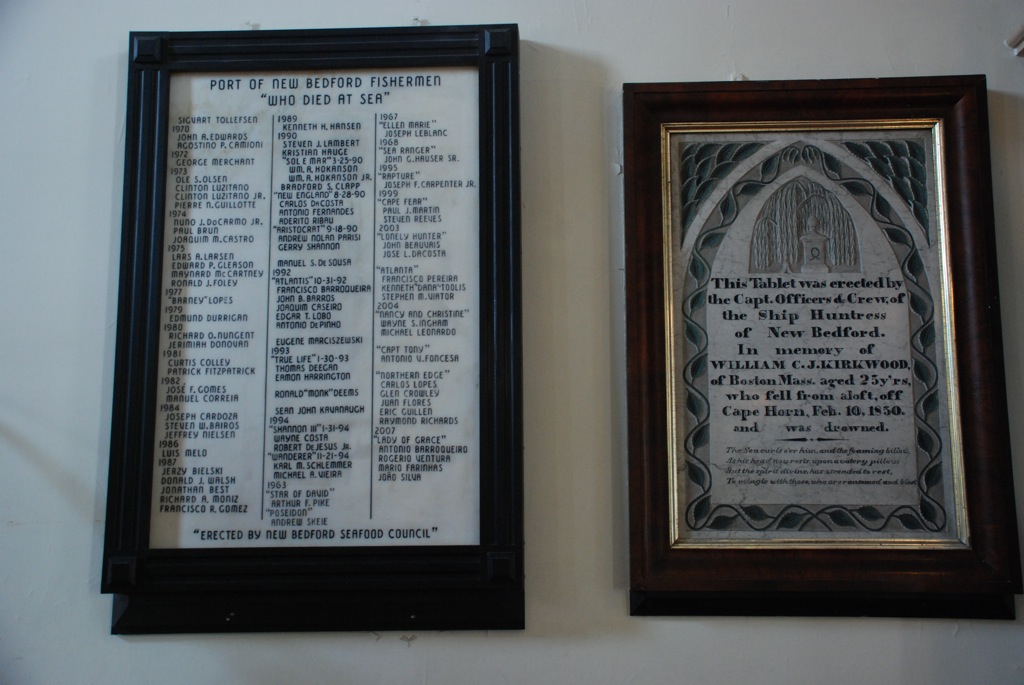 PORT OF NEW BEDFORD FISHERMEN
"WHO DIED AT SEA"
SIGVART TOLLEFSEN
1970
JOHN A. EDWARDS
AGOSTINO P. CAMIONI
1972
GEORGE MERCHANT
1973
OLE S. OLSEN
CLINTON LUZITANO
CLINTON LUZITANO JR.
PIERRE N. GUILLOTTE
1974
NUNO J. DOCARMO JR.
PAUL BRUN
JOAQUIM M. CASTRO
1975
LARS A. LARSEN
EDWARD P. GLEASON
MAYNARD MCCARTNEY
RONALD J. FOLEY
1977
"BARNEY" LOPES
1979
EDMUND DURRIGAN
1980
RICHARD O. NUGENT
JERIMIAH DONOVAN
1981
CURTIS COLLEY
PATRICK FITZPATRICK
1982
JOSÉ F. GOMES
MANUEL CORREIA
1984
JOSEPH CARDOZA
STEVEN W. BAIROS
JEFFREY NIELSEN
1986
LUIS MELO
1987
JERZY BIELSKI
DONALD J. WALSH
JONATHAN BEST
RICHARD A. MONIZ
FRANCISCO R. GOMEZ
1989
KENNETH H. HANSEN
1990
STEVEN J. LAMBERT
KRISTIAN HAUGE
"SOL E MAR" 3-25-90
WM. A. HOKANSON
WM. A. HOKANSON JR.
BRADFORD S. CLAPP
"NEW ENGLAND" 8-28-90
CARLOS DACOSTA
ANTONIO FERNANDES
ADERITO RIBAU
"ARISTOCRAT" 9-18-90
ANDREW NOLAN PARISI
GERRY SHANNON
MANUEL S. DE SOUSA
1992
"ATLANTIS" 10-31-92
FRANCISCO BARROQUEIRA
JOHN B. BARROS
JOAQUIM CASEIRO
EDGAR T. LOBO
ANTONIO DEPINHO
EUGENE MARCISZEWSKI
1993
"TRUE LIFE" 1-30-93
THOMAS DEEGAN
EAMON HARRINGTON
RONALD "MONK" DEEMS
SEAN JOHN KAVANAUGH
1994
"SHANNON III" 1-31-94
WAYNE COSTA
ROBERT DEJESUS JR.
"WANDERER" 11-21-94
KARL M. SCHLEMMER
MICHAEL A. VIEIRA
1963
"STAR OF DAVID"
ARTHUR F. PIKE
"POSEIDON"
ANDREW SKEIE
1967
"ELLEN MARIE"
JOSEPH LEBLANC
1968
"SEA RANGER"
JOHN G. HAUSER SR.
1995
"RAPTURE"
JOSEPH F. CARPENTER JR.
1999
"CAPE FEAR"
PAUL J. MARTIN
STEVEN REEVES
2003
"LONELY HUNTER"
JOHN BEAUVAIS
JOSE L. DACOSTA
"ATLANTA"
FRANCISCO PEREIRA
KENNETH "DANA" TOOLIS
STEPHEN M. VIATOR
2004
"NANCY AND CHRISTINE"
WAYNE S. INGHAM
MICHAEL LEONARDO
"CAPT TONY"
ANTONIO V. FONCESA
"NORTHERN EDGE"
CARLOS LOPES
GLEN CROWLEY
JUAN FLORES
ERIC GUILLEN
RAYMOND RICHARDS
2007
"LADY OF GRACE"
ANTONIO BARROQUEIRO
ROGERIO VENTURA
MARIO FARINHAS
JOÃO SILVA
"ERECTED BY NEW BEDFORD SEAFOOD COUNCIL"
This Tablet was erected by
the Capt. Officers & Crew, of
the Ship Huntress
of New Bedford.
In memory of
WILLIAM C. J. KIRKWOOD,
of Boston Mass. aged 25 y'rs,
who fell from aloft, off
Cape Horn, Feb. 10, 1850.
and was drowned.
The Sea curls o'er him, and the foaming billow,
As his head now rests, upon a watery pillow;
But the spirit divine, has ascended to rest,
To mingle with those, who are ransomed and blest.